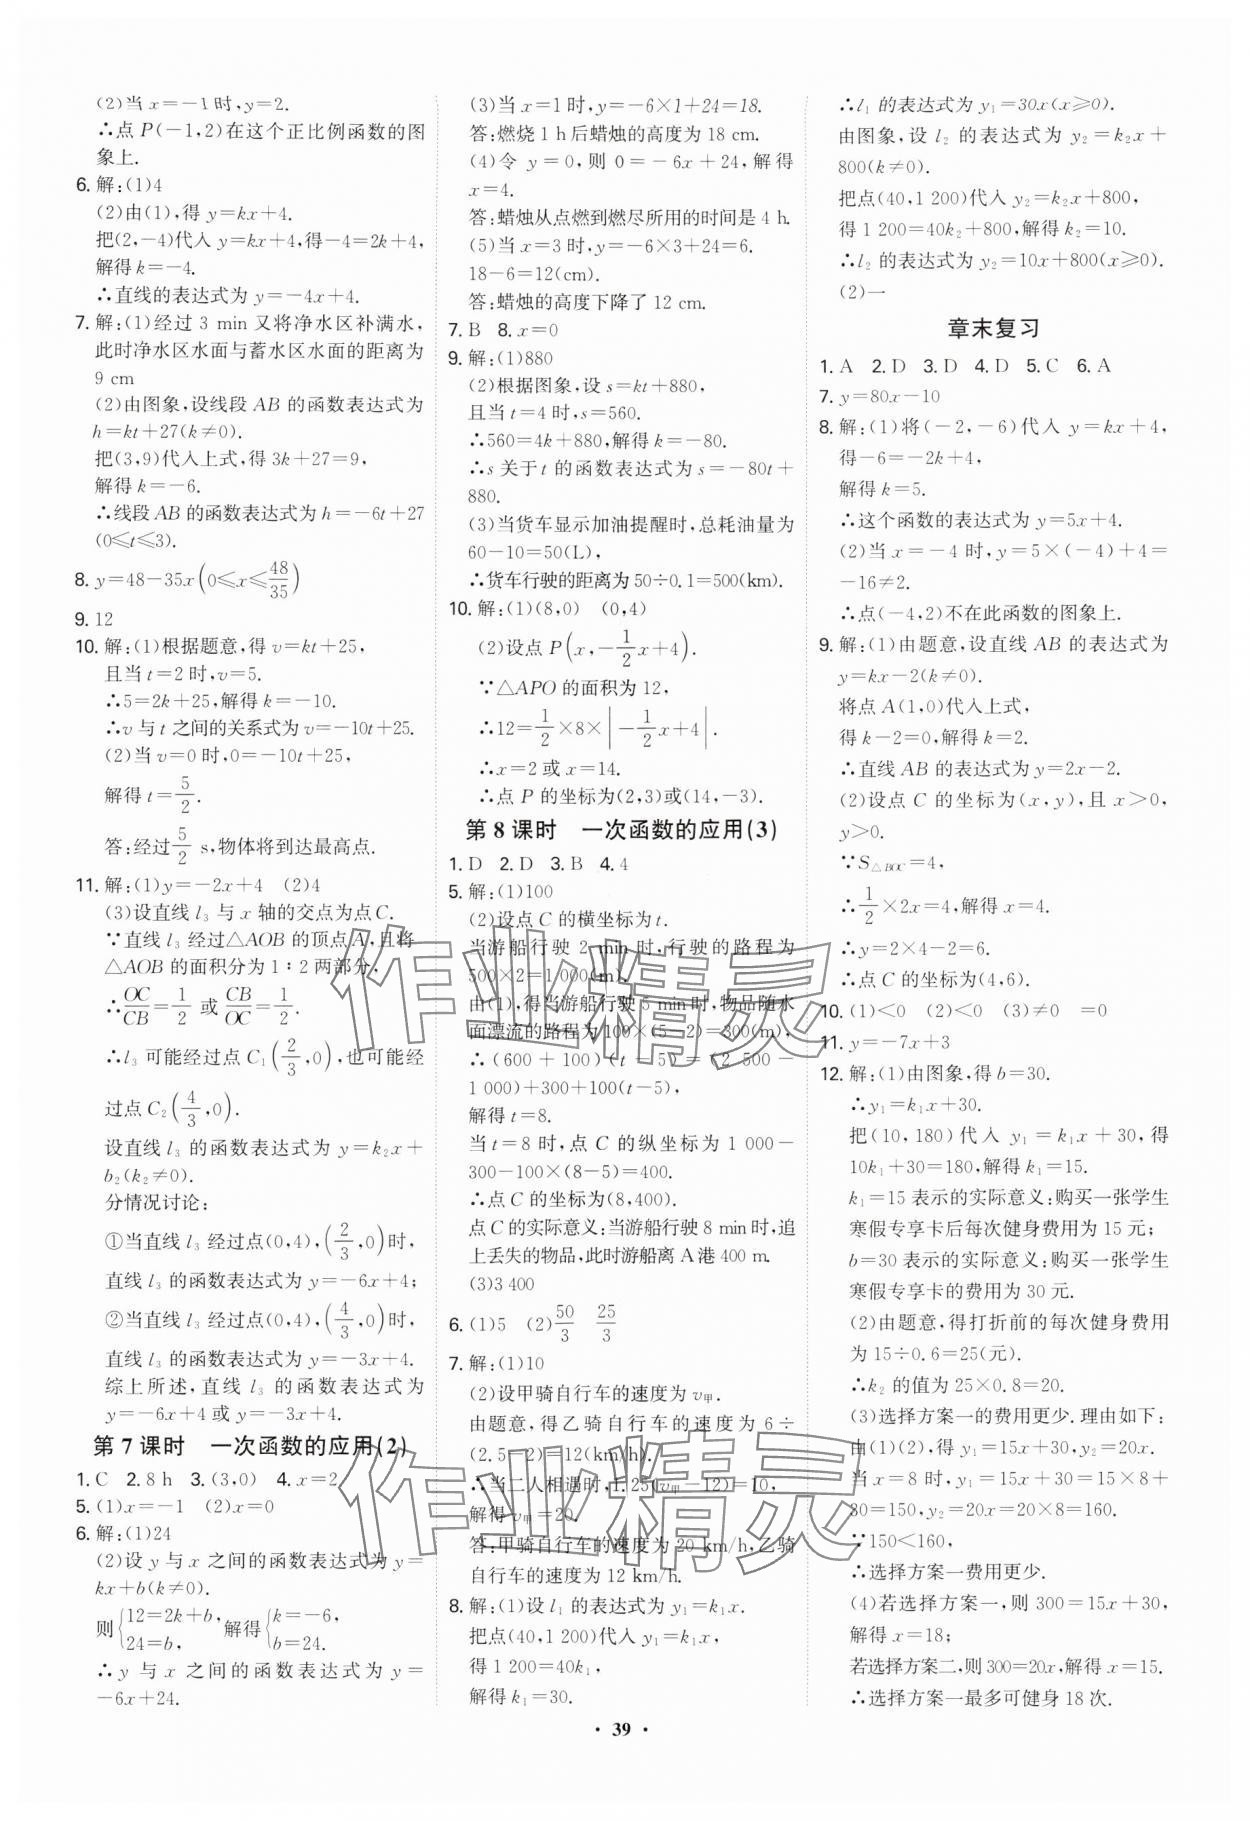 (2)当 x=-1时,y=2.
∴点 P(-1,2)在这个正比例函数的图
象上.
6. 解:(1)4
(2)由(1),得 y=kx+4.
把(2,-4)代入 y=kx+4,得-4=2k+4,
解得 k=-4.
∴直线的表达式为 y=-4x+4.
7. 解:(1)经过 3 min 又将净水区补满水,
此时净水区水面与蓄水区水面的距离为
9 cm
(2)由图象,设线段 AB 的函数表达式为
h=kt+27(k≠0).
把(3,9)代入上式,得 3k+27=9,
解得 k=-6.
∴线段 AB 的函数表达式为 h=-6t+27
(0≤t≤3).
8. y=48-35x(0≤x≤48/35)
9. 12
10. 解:(1)根据题意,得 v=kt+25,
且当 t=2 时,v=5.
∴5=2k+25,解得 k=-10.
∴v 与 t 之间的关系式为 v=-10t+25.
(2)当 v=0 时,0=-10t+25,
解得 t=5/2.
答:经过 5/2 s,物体将到达最高点.
11. 解:(1)y=-2x+4 (2)4
(3)设直线 l₃ 与 x 轴的交点为点 C.
∵直线 l₃ 经过△AOB 的顶点 A,且将
△AOB 的面积分为 1∶2 两部分,
∴OC/CB=1/2 或 CB/OC=1/2.
∴l₃ 可能经过点 C₁(2/3,0),也可能经
过点 C₂(4/3,0).
设直线 l₃ 的函数表达式为 y=k₂x+
b₂(k₂≠0).
分情况讨论:
①当直线 l₃ 经过点(0,4),(2/3,0)时,
直线 l₃ 的函数表达式为 y=-6x+4;
②当直线 l₃ 经过点(0,4),(4/3,0)时,
直线 l₃ 的函数表达式为 y=-3x+4.
综上所述,直线 l₃ 的函数表达式为
y=-6x+4 或 y=-3x+4.
第 7 课时 一次函数的应用(2)
1. C 2. 8 h 3. (3,0) 4. x=2
5. (1)x=-1 (2)x=0
6. 解:(1)24
(2)设 y 与 x 之间的函数表达式为 y=
kx+b(k≠0).
则{12=2k+b, 24=b, 解得{k=-6, b=24.
∴y 与 x 之间的函数表达式为 y=
-6x+24.
(3)当 x=1 时,y=-6×1+24=18.
答:燃烧 1 h 后蜡烛的高度为 18 cm.
(4)令 y=0,则 0=-6x+24,解得
x=4.
答:蜡烛从点燃到燃尽所用的时间是 4 h.
(5)当 x=3 时,y=-6×3+24=6.
18-6=12(cm).
答:蜡烛的高度下降了 12 cm.
7. B 8. x=0
9. 解:(1)880
(2)根据图象,设 s=kt+880,
且当 t=4 时,s=560.
∴560=4k+880,解得 k=-80.
∴s 关于 t 的函数表达式为 s=-80t+
880.
(3)当货车显示加油提醒时,总耗油量为
60-10=50(L),
∴货车行驶的距离为 50÷0.1=500(km).
10. 解:(1)(8,0) (0,4)
(2)设点 P(x,-1/2x+4).
∵△APO 的面积为 12,
∴12=1/2×8×|-1/2x+4|.
∴x=2 或 x=14.
∴点 P 的坐标为(2,3)或(14,-3).
第 8 课时 一次函数的应用(3)
1. D 2. D 3. B 4. 4
5. 解:(1)100
(2)设点 C 的横坐标为 t.
当游船行驶 2 min 时,行驶的路程为
500×2=1 000(m).
由(1),得当游船行驶 5 min 时,物品随水
面漂流的路程为 100×(5-2)=300(m),
∴(600+100)(t-5)=(2 500-
1 000)+300+100(t-5),
解得 t=8.
当 t=8 时,点 C 的纵坐标为 1 000-
300-100×(8-5)=400.
∴点 C 的坐标为(8,400).
点 C 的实际意义:当游船行驶 8 min 时,追
上丢失的物品,此时游船离 A 港 400 m.
(3)3 400
6. (1)5 (2)50/3 25/3
7. 解:(1)10
(2)设甲骑自行车的速度为 v甲.
由题意,得乙骑自行车的速度为 6÷
(2.5-2)=12(km/h).
∴当二人相遇时,1.25(v甲-12)=10,
解得 v甲=20.
答:甲骑自行车的速度为 20 km/h,乙骑
自行车的速度为 12 km/h.
8. 解:(1)设 l₁ 的表达式为 y₁=k₁x.
把点(40,1 200)代入 y₁=k₁x,
得 1 200=40k₁,
解得 k₁=30.
∴l₁ 的表达式为 y₁=30x(x≥0).
由图象,设 l₂ 的表达式为 y₂=k₂x+
800(k≠0).
把点(40,1 200)代入 y₂=k₂x+800,
得 1 200=40k₂+800,解得 k₂=10.
∴l₂ 的表达式为 y₂=10x+800(x≥0).
(2)一
章末复习
1. A 2. D 3. D 4. D 5. C 6. A
7. y=80x-10
8. 解:(1)将(-2,-6)代入 y=kx+4,
得-6=-2k+4,
解得 k=5.
∴这个函数的表达式为 y=5x+4.
(2)当 x=-4 时,y=5×(-4)+4=
-16≠2.
∴点(-4,2)不在此函数的图象上.
9. 解:(1)由题意,设直线 AB 的表达式为
y=kx-2(k≠0).
将点 A(1,0)代入上式,
得 k-2=0,解得 k=2.
∴直线 AB 的表达式为 y=2x-2.
(2)设点 C 的坐标为(x,y),且 x>0,
y>0.
∵S△BOC=4,
∴1/2×2x=4,解得 x=4.
∴y=2×4-2=6.
∴点 C 的坐标为(4,6).
10. (1)<0 (2)<0 (3)≠0 =0
11. y=-7x+3
12. 解:(1)由图象,得 b=30.
∴y₁=k₁x+30.
把(10,180)代入 y₁=k₁x+30,得
10k₁+30=180,解得 k₁=15.
k₁=15 表示的实际意义:购买一张学生
寒假专享卡后每次健身费用为 15 元;
b=30 表示的实际意义:购买一张学生
寒假专享卡的费用为 30 元.
(2)由题意,得打折前的每次健身费用
为 15÷0.6=25(元).
∴k₂ 的值为 25×0.8=20.
(3)选择方案一的费用更少.理由如下:
由(1)(2),得 y₁=15x+30,y₂=20x.
当 x=8 时,y₁=15x+30=15×8+
30=150,y₂=20x=20×8=160.
∵150<160,
∴选择方案一费用更少.
(4)若选择方案一,则 300=15x+30,
解得 x=18;
若选择方案二,则 300=20x,解得 x=15.
∴选择方案一最多可健身 18 次.
· 39 ·
作业精灵
作业精灵